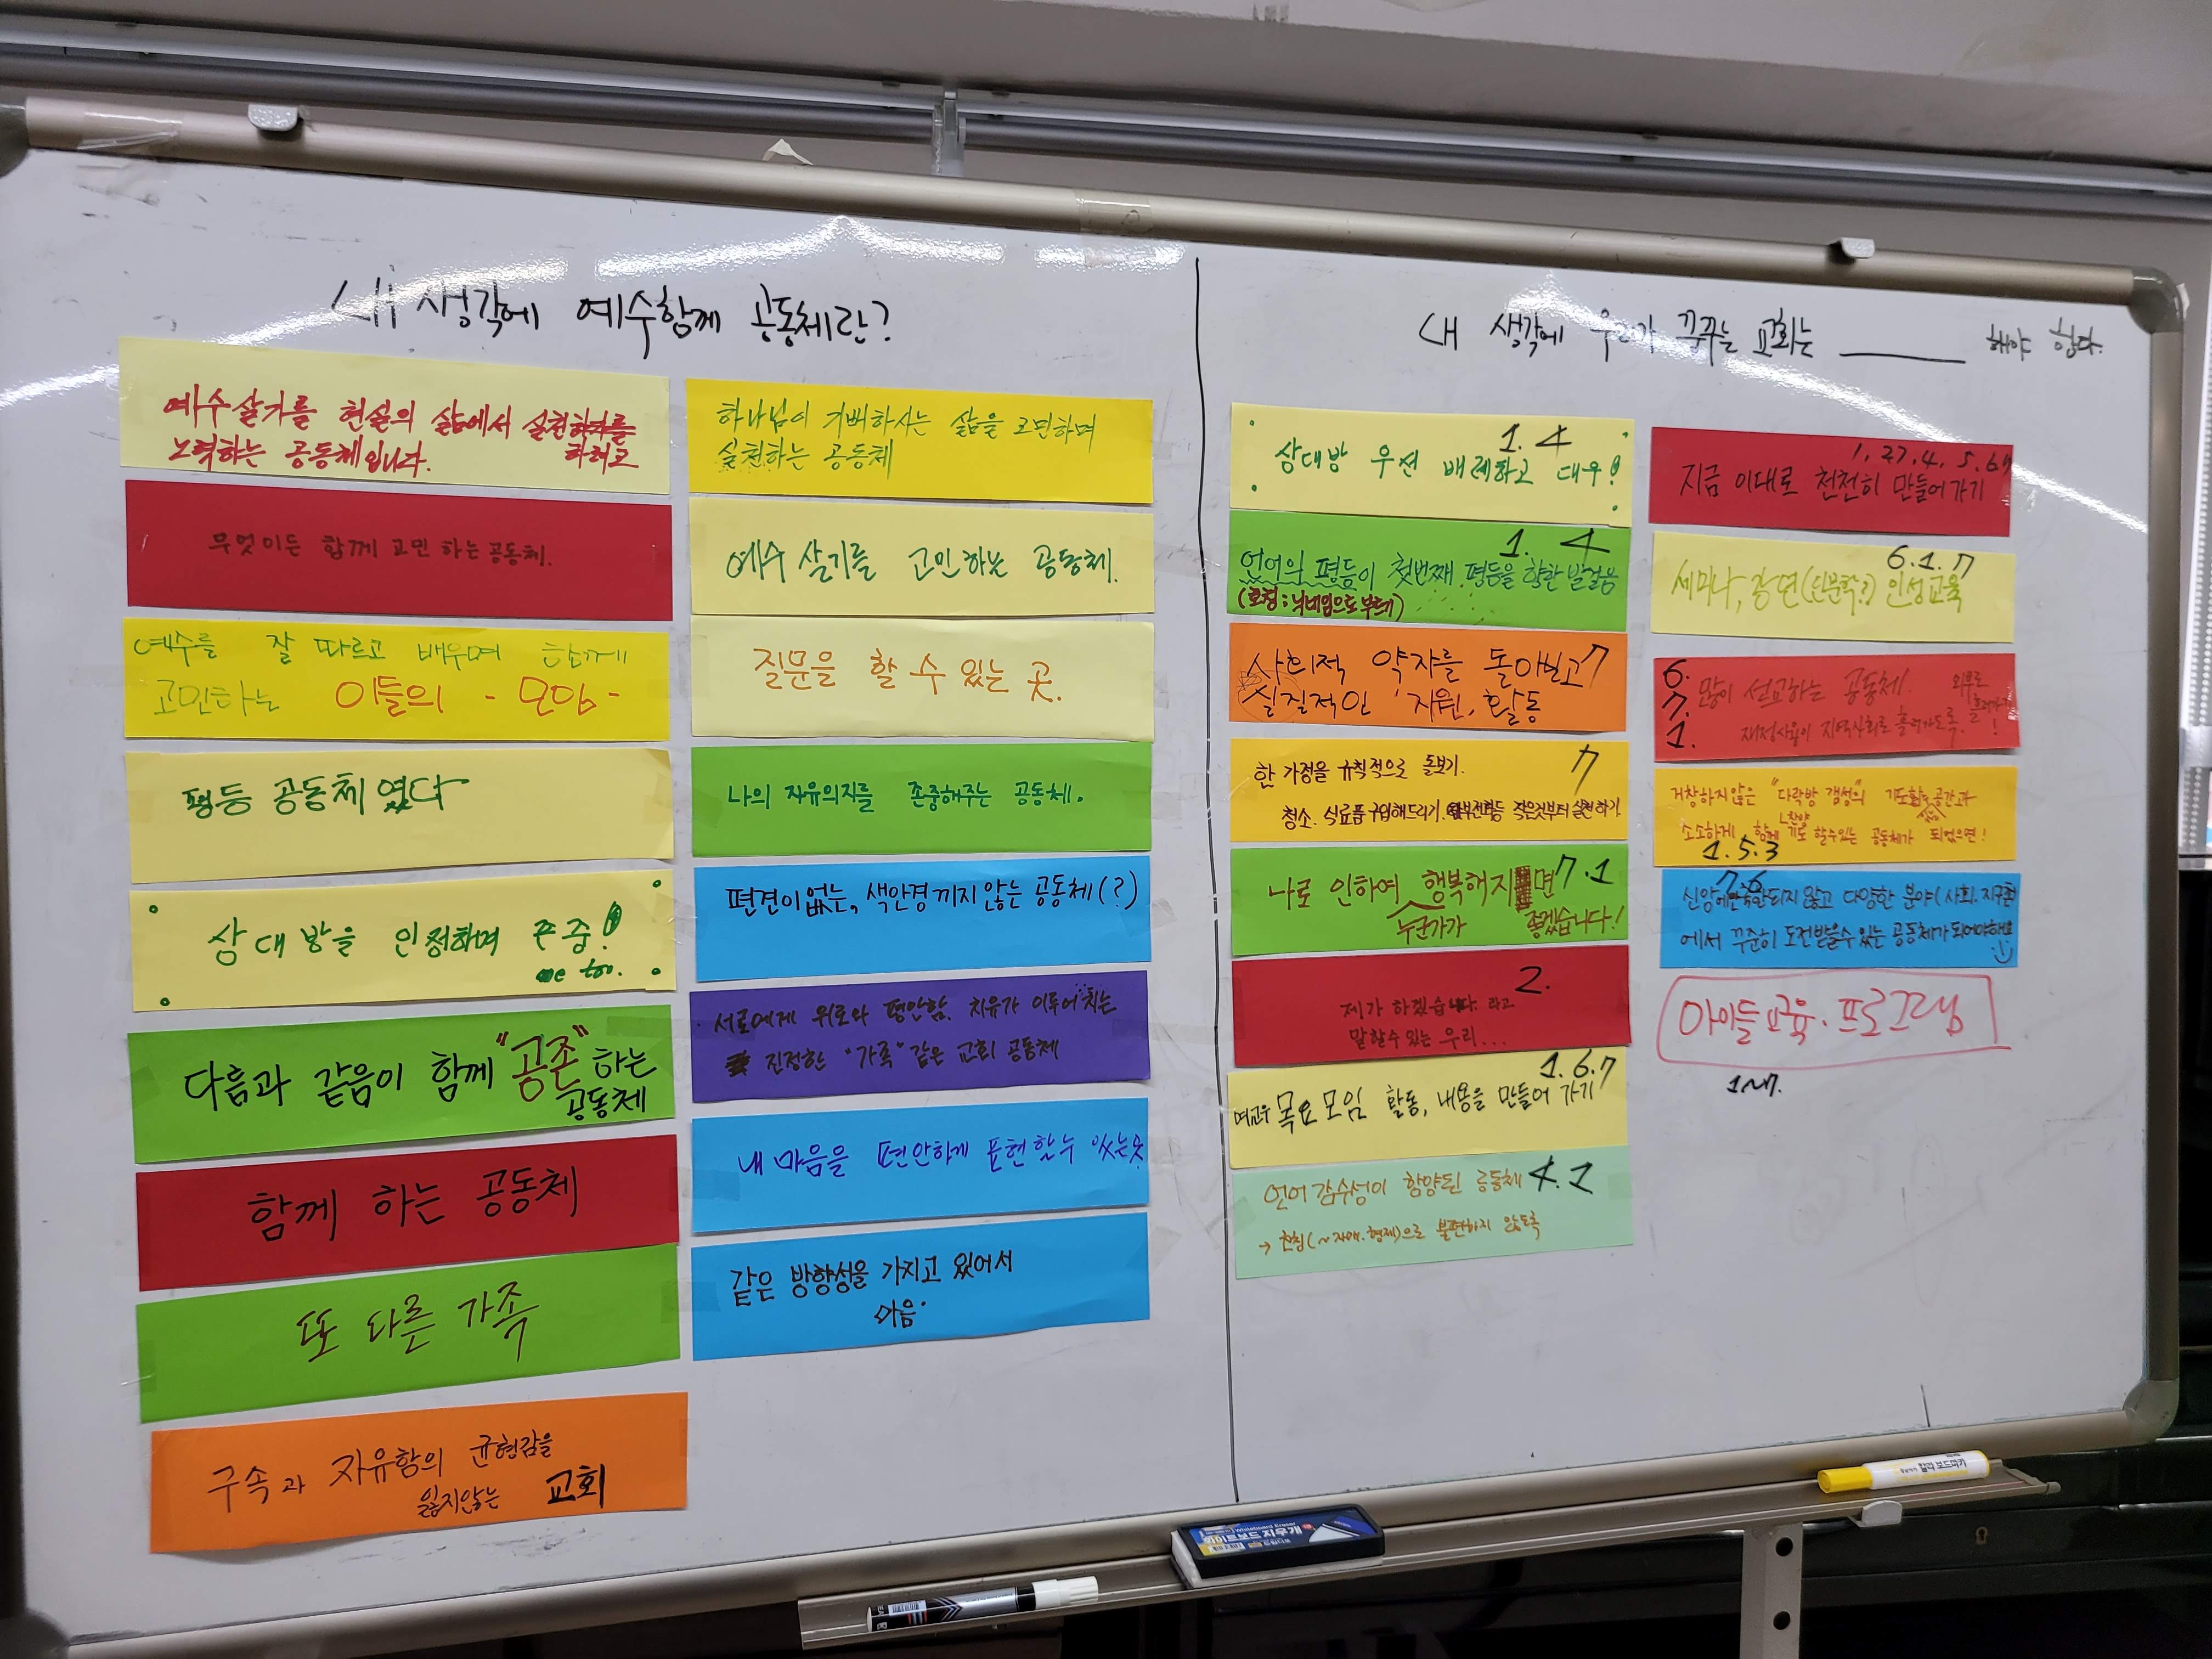 내 생각에 예수함께 공동체란?
예수살기를 현실의 삶에서 실천하려를
노력하는 공동체입니다. 하려고
무엇이든 함께 고민 하는 공동체.
예수를 잘 따르고 배우며 함께
고민하는 이들의 - 모임 -
평등 공동체였다
상대방을 인정하며 존중!
me too.
다름과 같음이 함께 "공존" 하는
공동체
함께 하는 공동체
또 다른 가족
구속과 자유함의 균형감을
잃지않는 교회
하나님이 기뻐하시는 삶을 고민하며
실천하는 공동체
예수 살기를 고민하는 공동체.
질문을 할 수 있는 곳.
나의 자유의지를 존중해주는 공동체.
편견이없는, 색안경끼지않는 공동체(?)
서로에게 위로와 평안함. 치유가 이루어지는
진정한 "가족" 같은 교회 공동체
내 마음을 편안하게 표현할수 있는곳
같은 방향성을 가지고 있어서
마음.
내 생각에 우리가 꿈꾸는 교회는 ______ 해야 한다.
1. 4
상대방 우선 배려하고 대우!
1. 4
언어의 평등이 첫번째. 평등을 향한 발걸음
(호칭; 닉네임으로 부터)
사회적 약자를 돌아보고 7
실질적인 지원, 활동
한 가정을 규칙적으로 돌보기. 7
청소. 식료품구입해드리기. 작은것부터 실천하기
나로 인하여 행복해지면 7.1
누군가가 좋겠습니다!
2.
제가 하겠습니다. 라고
말할수 있는 우리...
1.6.7
목요모임 활동, 내용을 만들어 가기
언어감수성이 함양된 공동체 4.1
→ 호칭(~자매.형제)으로 불편하지 않도록
지금 이대로 천천히 만들어가기
6.1.7
세미나, 강연(인문학?) 인성교육
6.
7. 많이 선교하는 공동체. 외부로
1. 재정사용이 지역사회로 흘러가도록. !
거창하지않은 "다락방 갬성"의 공간과
찬양
소소하게 함께 기도 할수있는 공동체가 되었으면!
1.5.3
7.6
되지 않고 다양한 분야(사회.
에서 꾸준히 도전받을수있는 공동체가되어야해요
아이들교육.프로그램
1~7.
화이트보드 지우개
Whiteboard Eraser
칼라보드마카